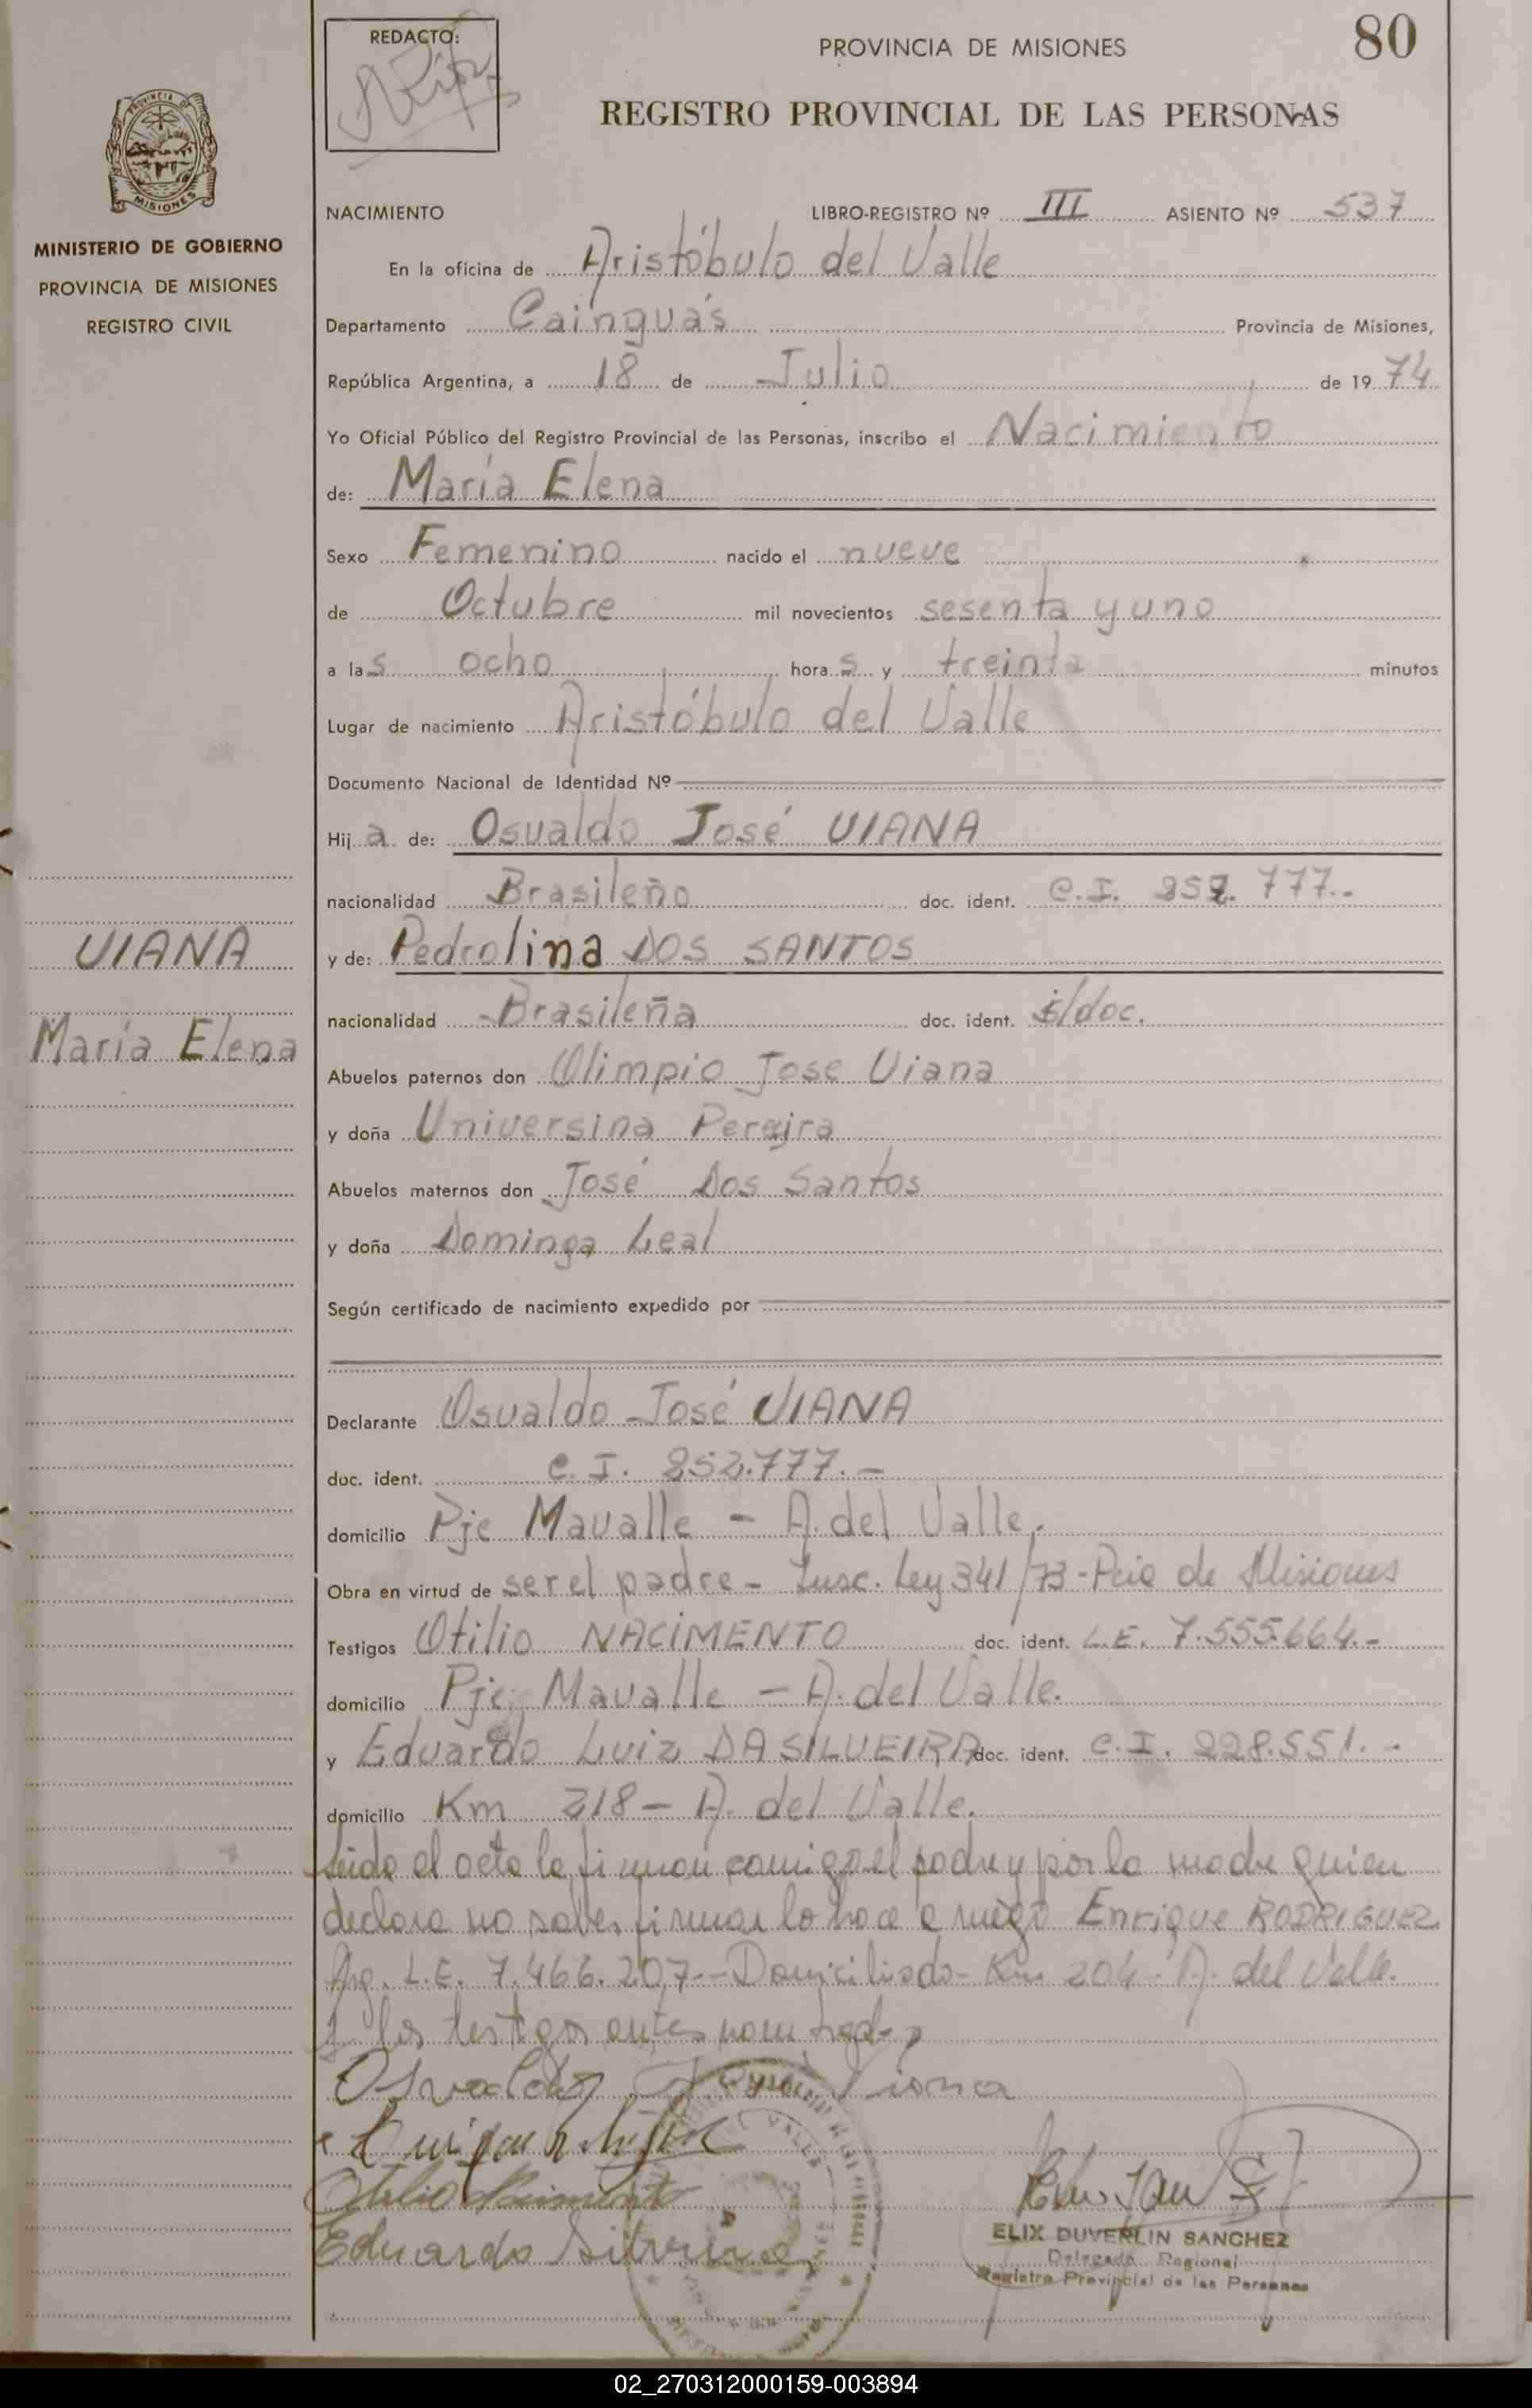 REDACTO:
PROVINCIA DE MISIONES
80
REGISTRO PROVINCIAL DE LAS PERSONAS
PROVINCIA DE
MISIONES
MINISTERIO DE GOBIERNO
PROVINCIA DE MISIONES
REGISTRO CIVIL
NACIMIENTO LIBRO-REGISTRO Nº III ASIENTO Nº 537
En la oficina de Aristóbulo del Valle
Departamento Cainguás Provincia de Misiones,
República Argentina, a 18 de Julio de 1974
Yo Oficial Público del Registro Provincial de las Personas, inscribo el Nacimiento
de: María Elena
Sexo Femenino nacido el nueve
de Octubre mil novecientos sesenta y uno
a las ocho horas y treinta minutos
Lugar de nacimiento Aristóbulo del Valle
Documento Nacional de Identidad Nº
Hija de: Osvaldo José VIANA
nacionalidad Brasileño doc. ident. C.I. 252.777.-
VIANA
y de: Pedrolina DOS SANTOS
nacionalidad Brasileña doc. ident. s/doc.
María Elena
Abuelos paternos don Olimpio Jose Viana
y doña Universina Pereira
Abuelos maternos don José Dos Santos
y doña Dominga Leal
Según certificado de nacimiento expedido por
Declarante Osvaldo José VIANA
doc. ident. C.I. 252.777.-
domicilio Pje Mavalle - A. del Valle.
Obra en virtud de ser el padre - Insc. Ley 341/73 - Pcia de Misiones
Testigos Otilio NACIMENTO doc. ident. L.E. 7.555.664.-
domicilio Pje. Mavalle - A. del Valle.
y Eduardo Luiz DA SILVEIRA doc. ident. C.I. 228.551.-
domicilio Km 218 - A. del Valle.
Leida el acta la firman conmigo el padre y por la madre quien
declara no saber firmar lo hace a ruego Enrique RODRIGUEZ
Arg. L.E. 7.466.207.- Domiciliado - Km 204 - A. del Valle.
y los testigos antes nombrados
Osvaldo Viana
Eduardo Silveira
ELIX DUVERLIN SANCHEZ
Delegado Regional
Registro Provincial de las Personas
02_270312000159-003894